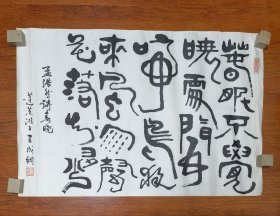 春眠不覺
曉處々聞
啼鳥夜
來風雨聲
花落知多少
孟浩然詩春曉